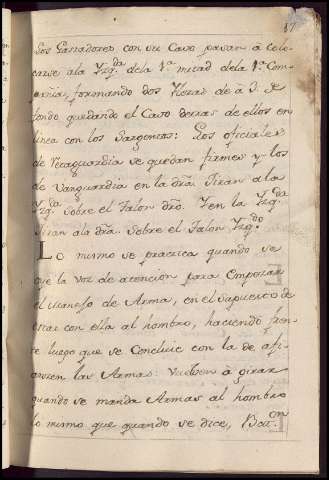 17
Los Gastadores con su Cavo pasan á colo
carse ala Yzq.da dela 1.a mitad dela 1.a Com
pañia, formando dos Yleras de á 3. de
fondo quedando el Cavo detras de ellos en
linea con los Sargentos: Los oficiales
de Retaguardia se quedan firmes y los
de Vanguardia en la dra. Jiran ala
Yzq.da sobre el Talon dro. Y en la Yzq.da
Jiran ala dra. sobre el Talon Yzq.do
Lo mismo se practica quando se
que la voz de atencion para Empezar
el manejo de Arma, en el supuesto de
estar con ella al hombro, haciendo fren
te luego que se Concluie con la de afi
anzen las Armas: vuelven á girar
quando se manda Armas al hombro
lo mismo que quando se dice, Bat.on